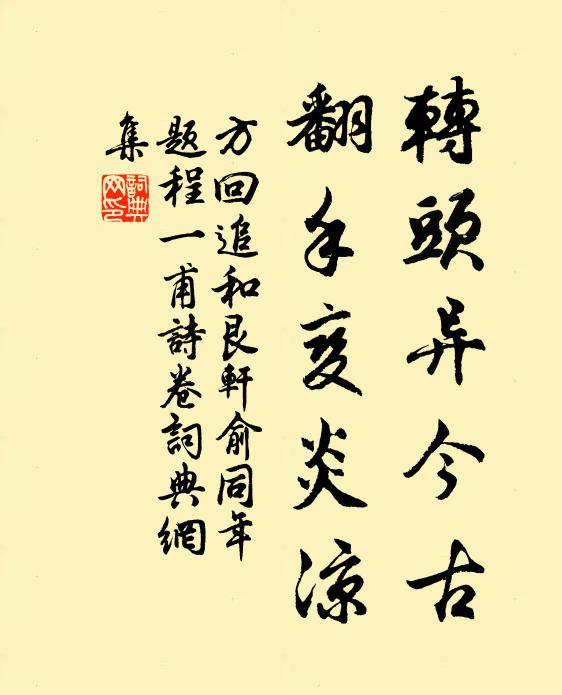 轉頭异今古
翻手变炎凉
方回追和艮軒俞同年
题程一甫詩卷詞典網
集
詞典
网印